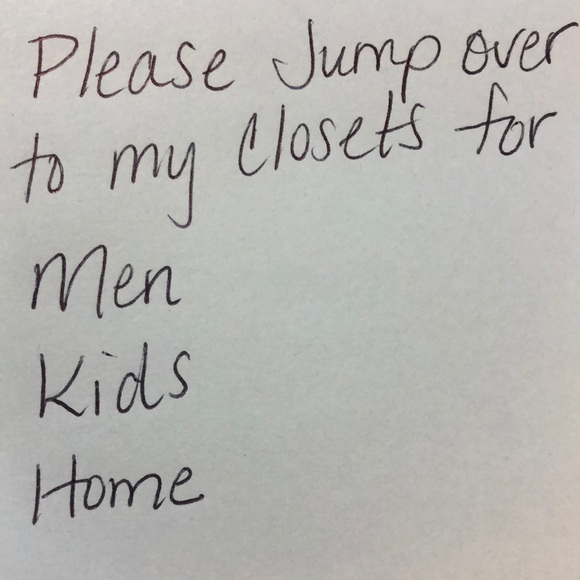 Please Jump over
to my Closets for
Men
Kids
Home